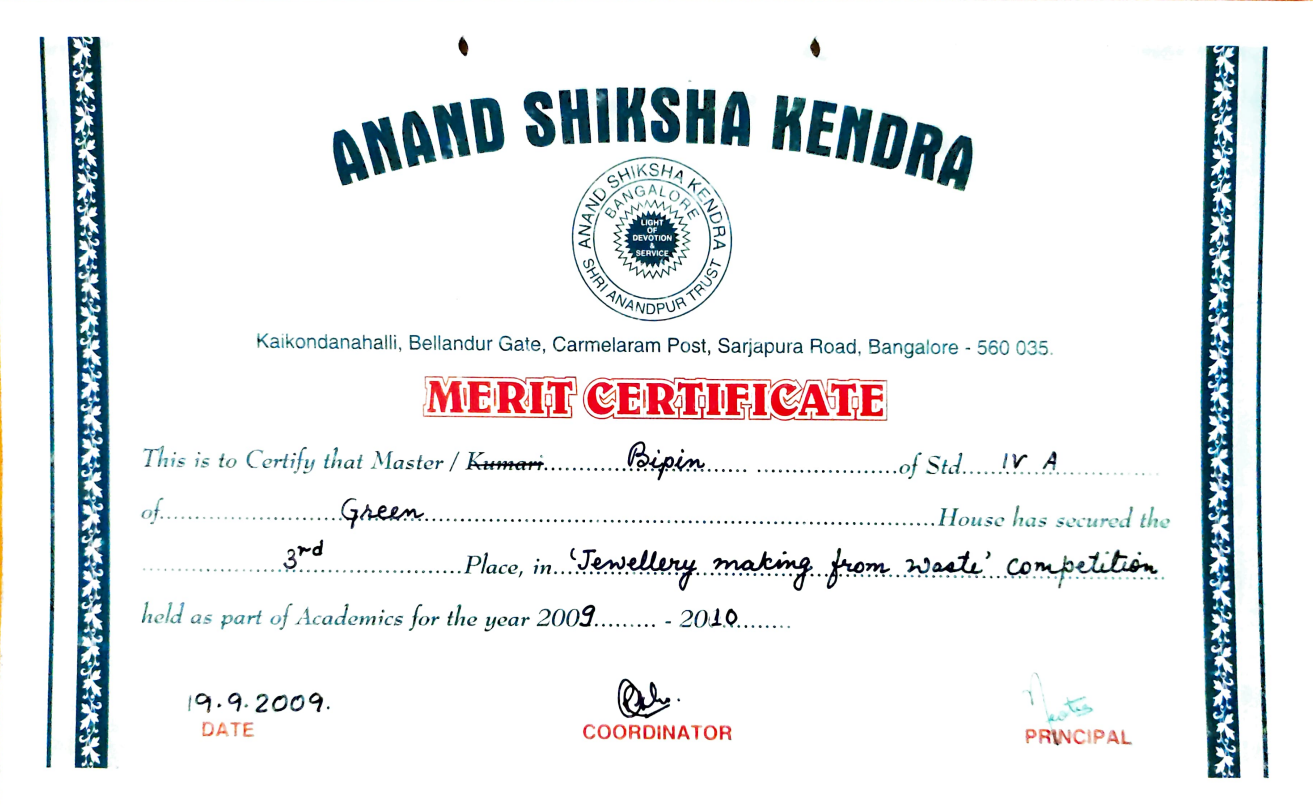 ANAND SHIKSHA KENDRA
ANAND SHIKSHA KENDRA
BANGALORE
LIGHT
OF
DEVOTION
&
SERVICE
SHRI ANANDPUR TRUST
Kaikondanahalli, Bellandur Gate, Carmelaram Post, Sarjapura Road, Bangalore - 560 035.
MERIT CERTIFICATE
This is to Certify that Master / Kumari.......... Bipin ...... ....................of Std.... IV A ...............
of................... Green .......................................................House has secured the
............... 3rd ....................Place, in.. 'Jewellery making from waste' competition
held as part of Academics for the year 2009......... - 2010........
19.9.2009.
DATE
COORDINATOR
PRINCIPAL